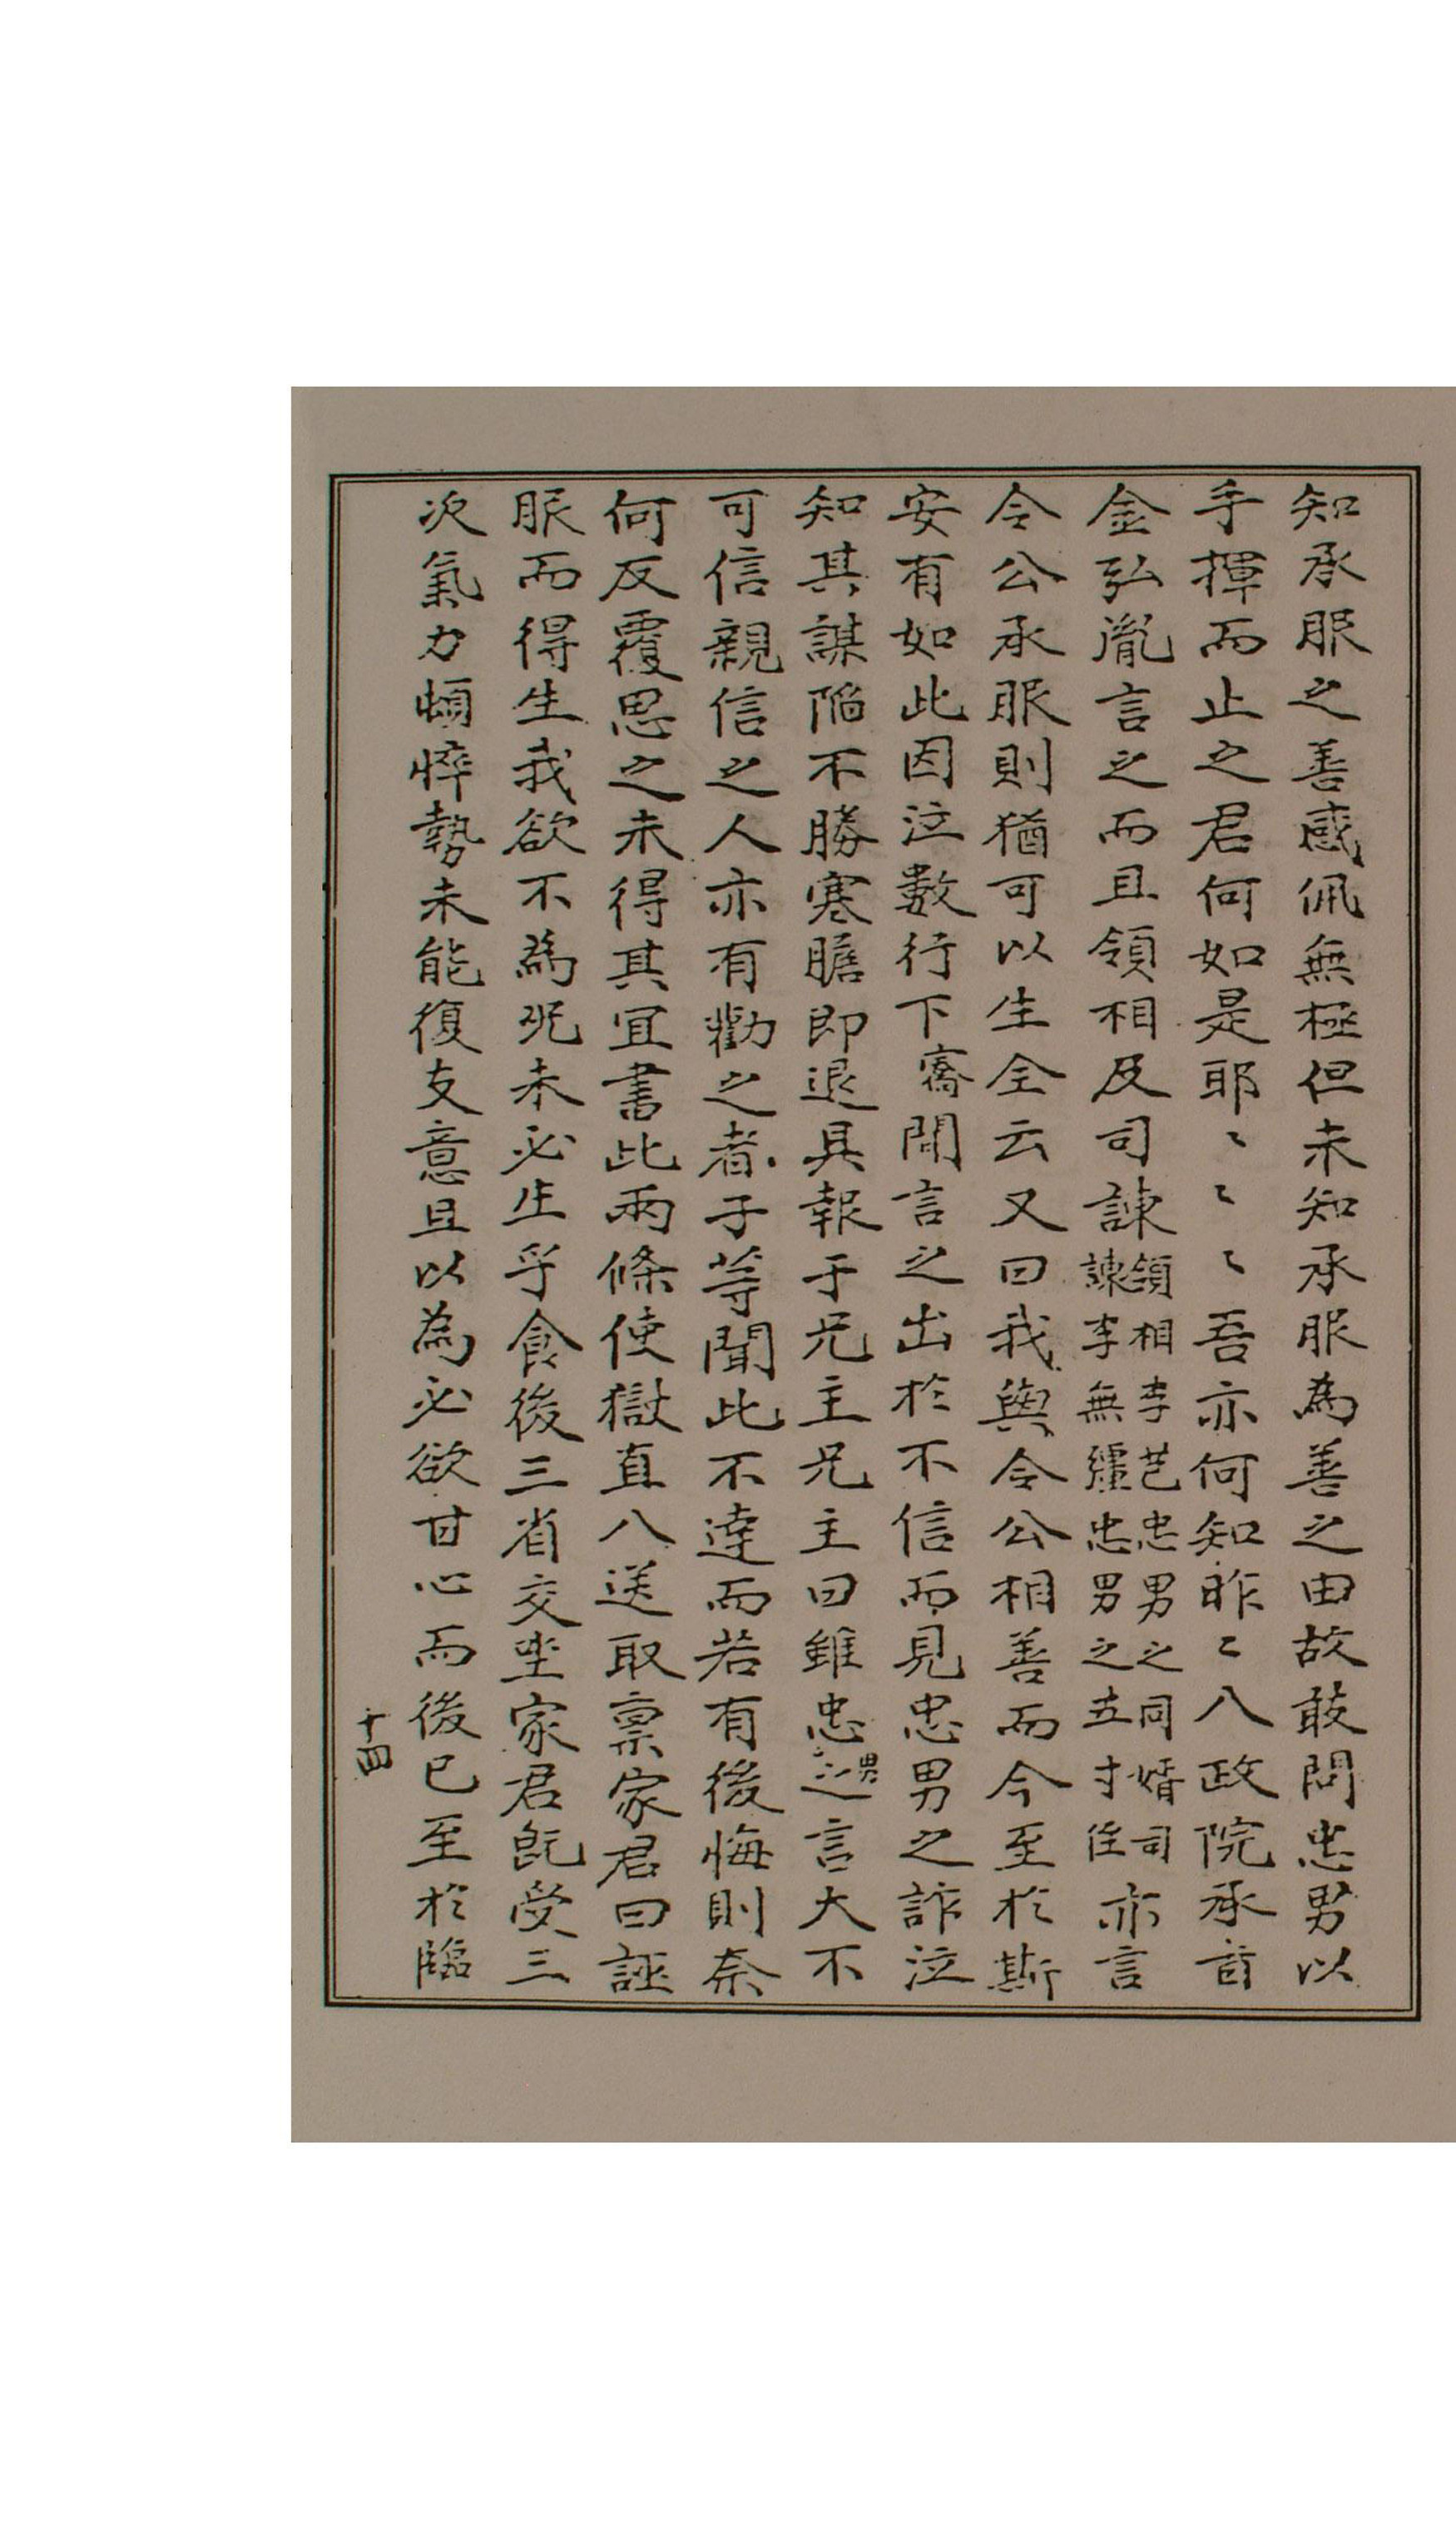 知承服之善感佩無極但未知承服為善之由故敢問忠男以
手揮而止之君何如是耶〻〻〻吾亦何知昨〻八政院承旨
金弘胤言之而且領相及司諫領相李芑忠男之同婿司諫李無彊忠男之五寸侄亦言
令公承服則猶可以生全云又曰我與令公相善而今至於斯
安有如此因泣數行下㝯聞言之出於不信而見忠男之詐泣
知其謀陷不勝寒膽即退具報于兄主兄主曰雖忠男之言大不
可信親信之人亦有勸之者子等聞此不達而若有後悔則奈
何反覆思之未得其宜書此兩條使獄直八送取稟家君曰誣
服而得生我欲不為况未必生乎食後三省交坐家君既受三
次氣力頓悴勢未能復支意且以為必欲甘心而後已至於臨
十四